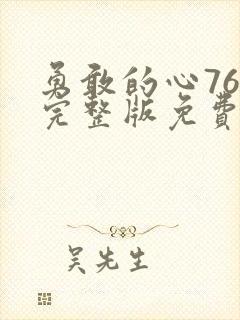 勇敢的心76
完整版免费
吴先生